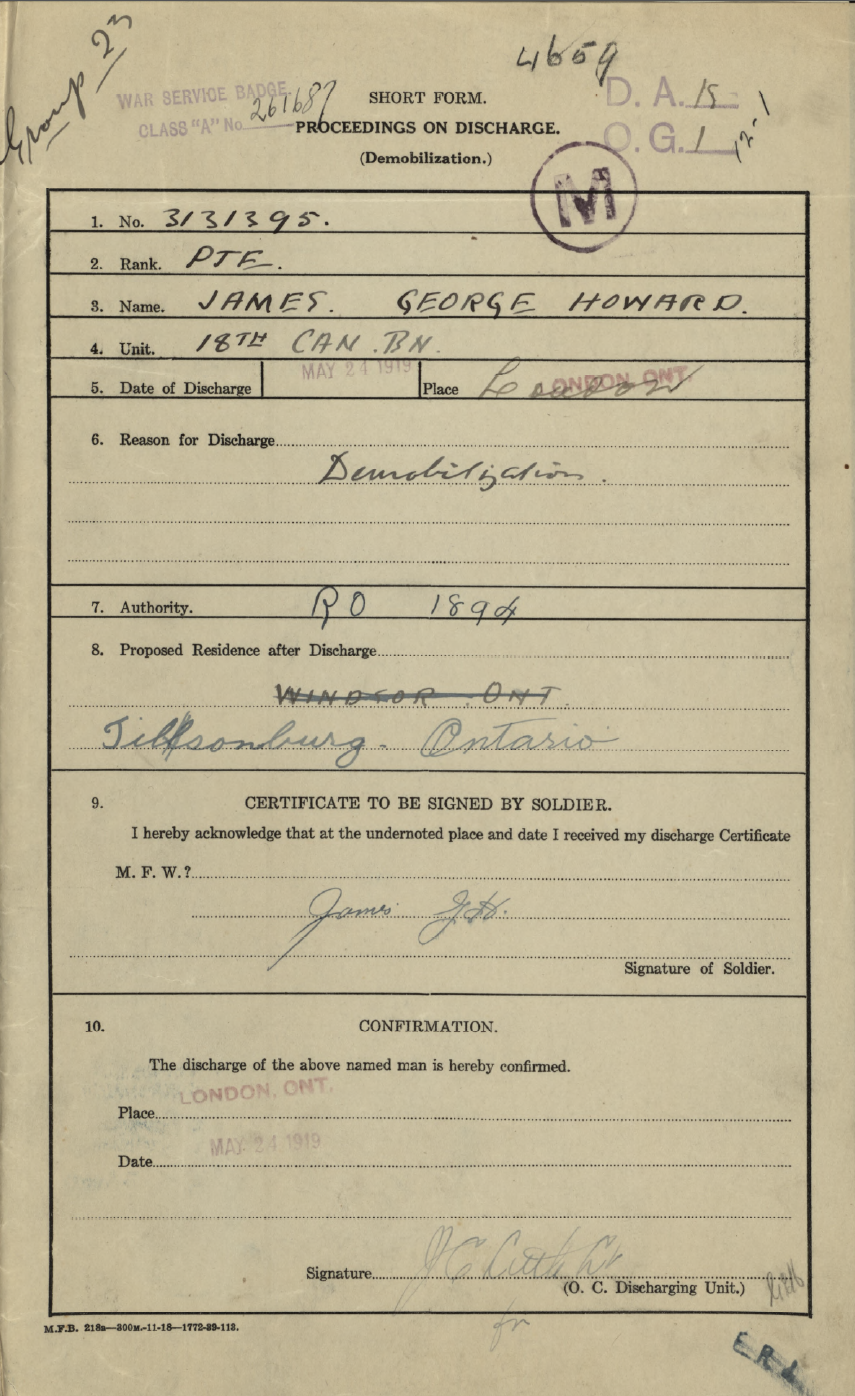 Group 23
4659
WAR SERVICE BADGE
CLASS "A" No. 261687
SHORT FORM.
PROCEEDINGS ON DISCHARGE.
(Demobilization.)
D. A. 15
O. G. 1
12-1
M
1. No. 3131395.
2. Rank. PTE.
3. Name. JAMES. GEORGE HOWARD.
4. Unit. 18TH CAN. BN.
5. Date of Discharge MAY 24 1919 Place London LONDON, ONT.
6. Reason for Discharge
Demobilization.
7. Authority. RO 1894
8. Proposed Residence after Discharge
WINDSOR ONT.
Tillsonburg. Ontario
9. CERTIFICATE TO BE SIGNED BY SOLDIER.
I hereby acknowledge that at the undernoted place and date I received my discharge Certificate
M. F. W.?
James G.H.
Signature of Soldier.
10. CONFIRMATION.
The discharge of the above named man is hereby confirmed.
LONDON, ONT.
Place
MAY 24 1919
Date
Signature
(O. C. Discharging Unit.)
for
M.F.B. 218B—300M.-11-18—1772-39-113.